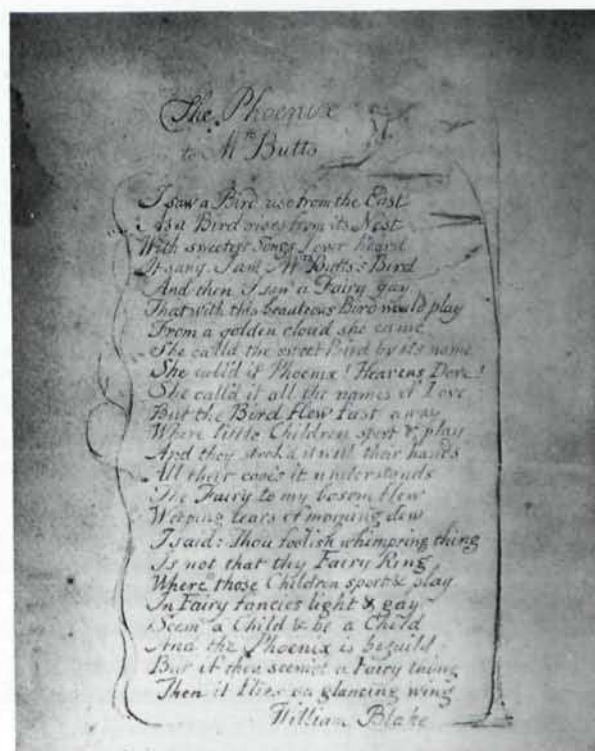 The Phoenix
to Mrs Butts
I saw a Bird rise from the East
As a Bird rises from its Nest
With sweetest Songs I ever heard
It sang I am Mrs Butts's Bird
And then I saw a Fairy gay
That with this beauteous Bird would play
From a golden cloud she came
She call'd the sweet Bird by its name
She call'd it Phoenix! Heavens Dove!
She call'd it all the names of Love
But the Bird flew fast away
Where little Children sport & play
And they strok'd it with their hands
All their cooe's it understands
The Fairy to my bosom flew
Weeping tears of morning dew
I said: Thou foolish whimpring thing
Is not that thy Fairy Ring
Where those Children sport & play
In Fairy fancies light & gay
Seem a Child & be a Child
And the Phoenix is beguil'd
But if thou seem'st a Fairy thing
Then it flies on glancing Wing
William Blake